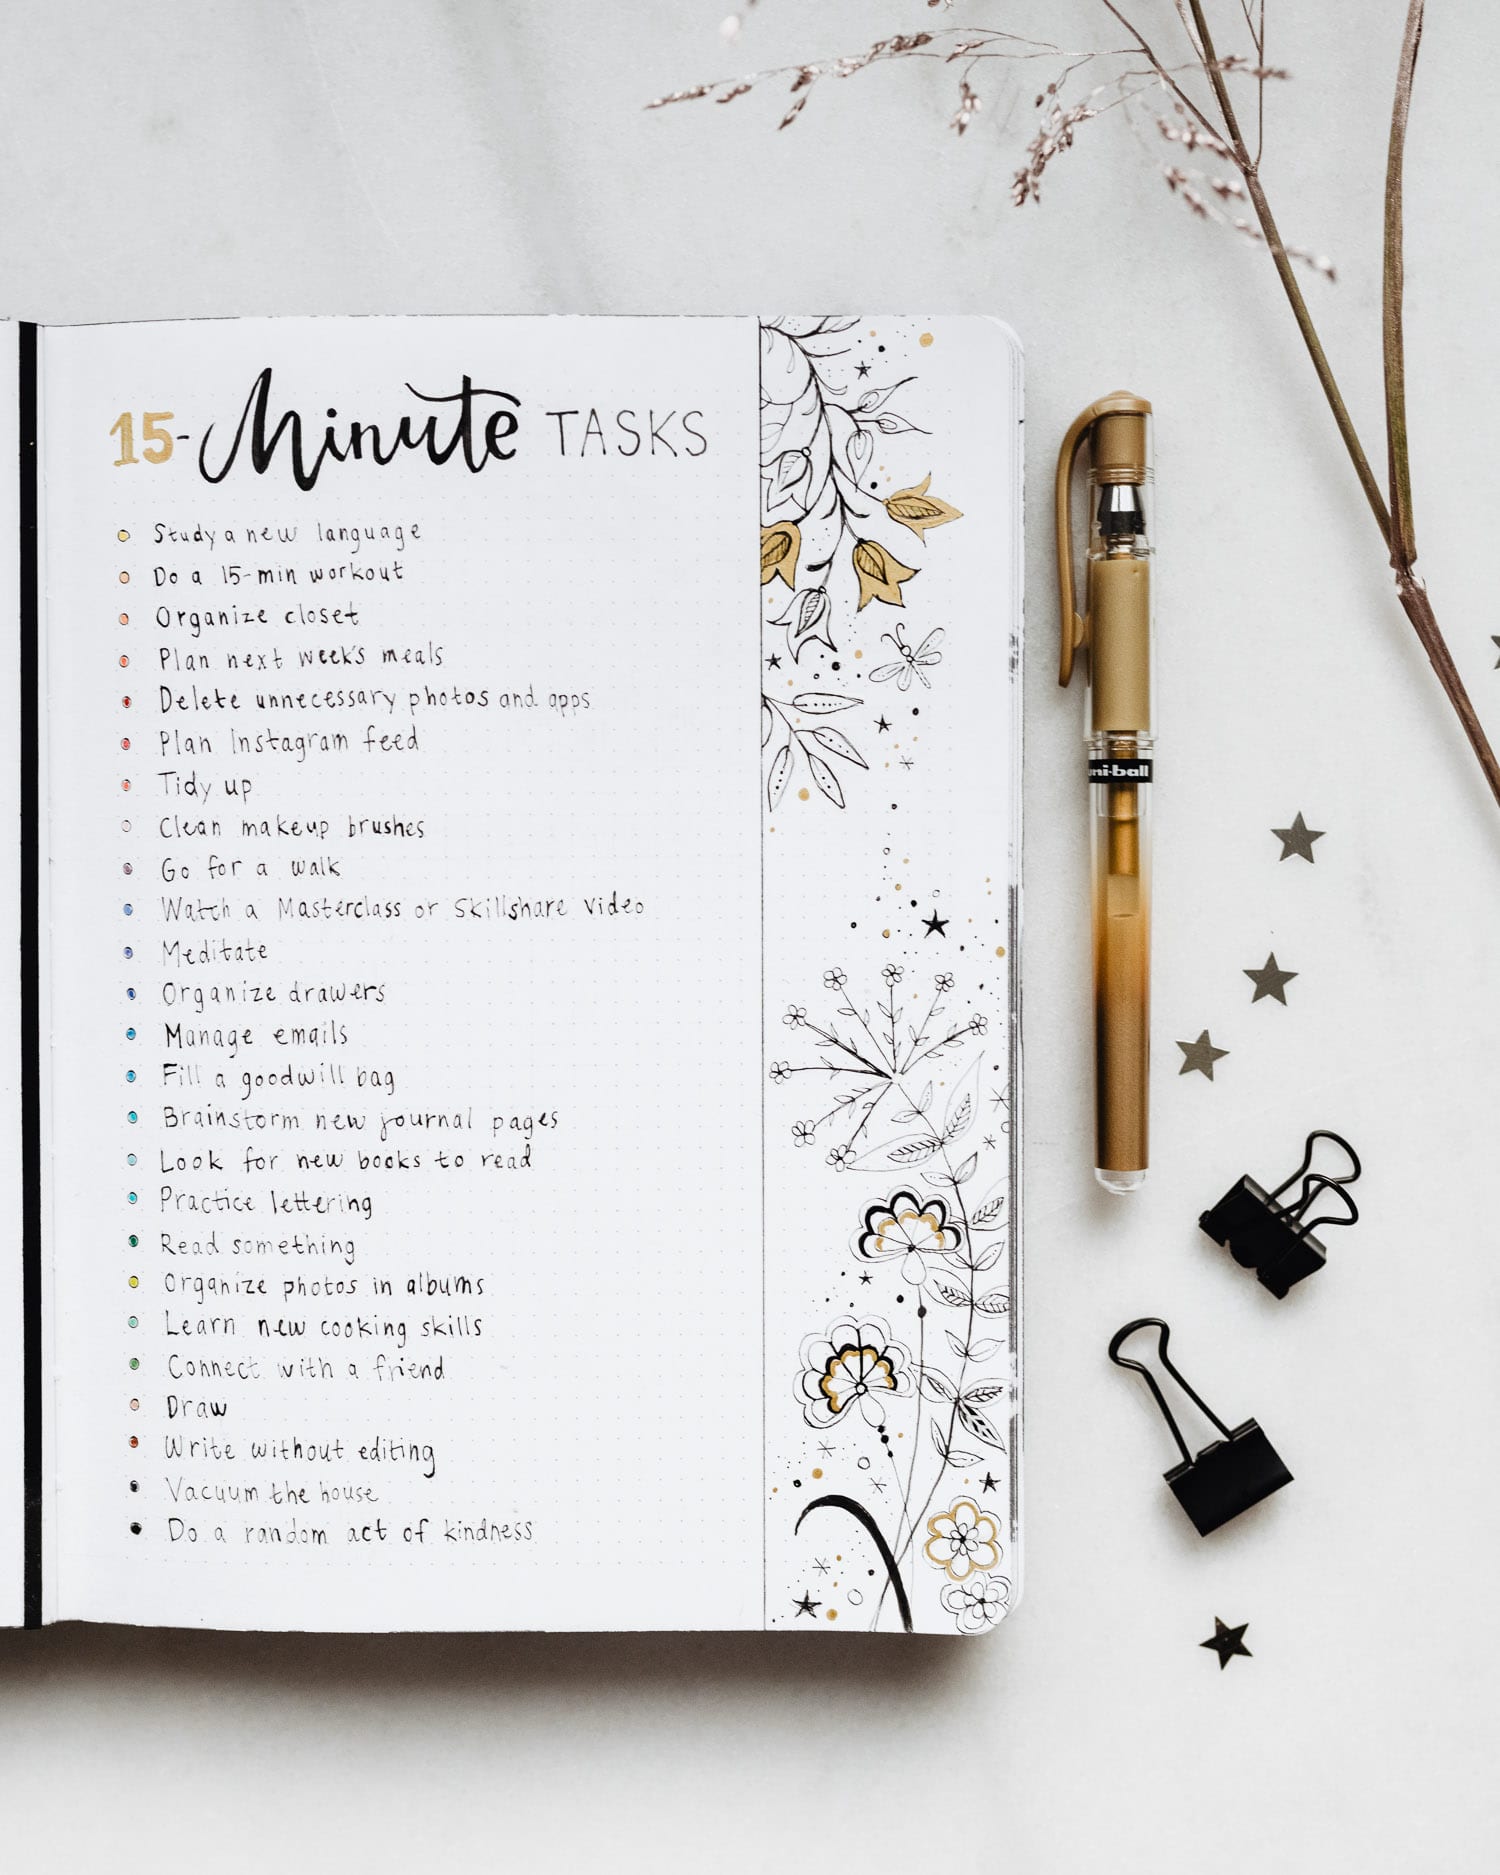 15-Minute TASKS
Study a new language
Do a 15-min workout
Organize closet
Plan next week's meals
Delete unnecessary photos and apps
Plan Instagram feed
Tidy up
Clean makeup brushes
Go for a walk
Watch a Masterclass or Skillshare video
Meditate
Organize drawers
Manage emails
Fill a goodwill bag
Brainstorm new journal pages
Look for new books to read
Practice lettering
Read something
Organize photos in albums
Learn new cooking skills
Connect with a friend
Draw
Write without editing
Vacuum the house
Do a random act of kindness
uni-ball